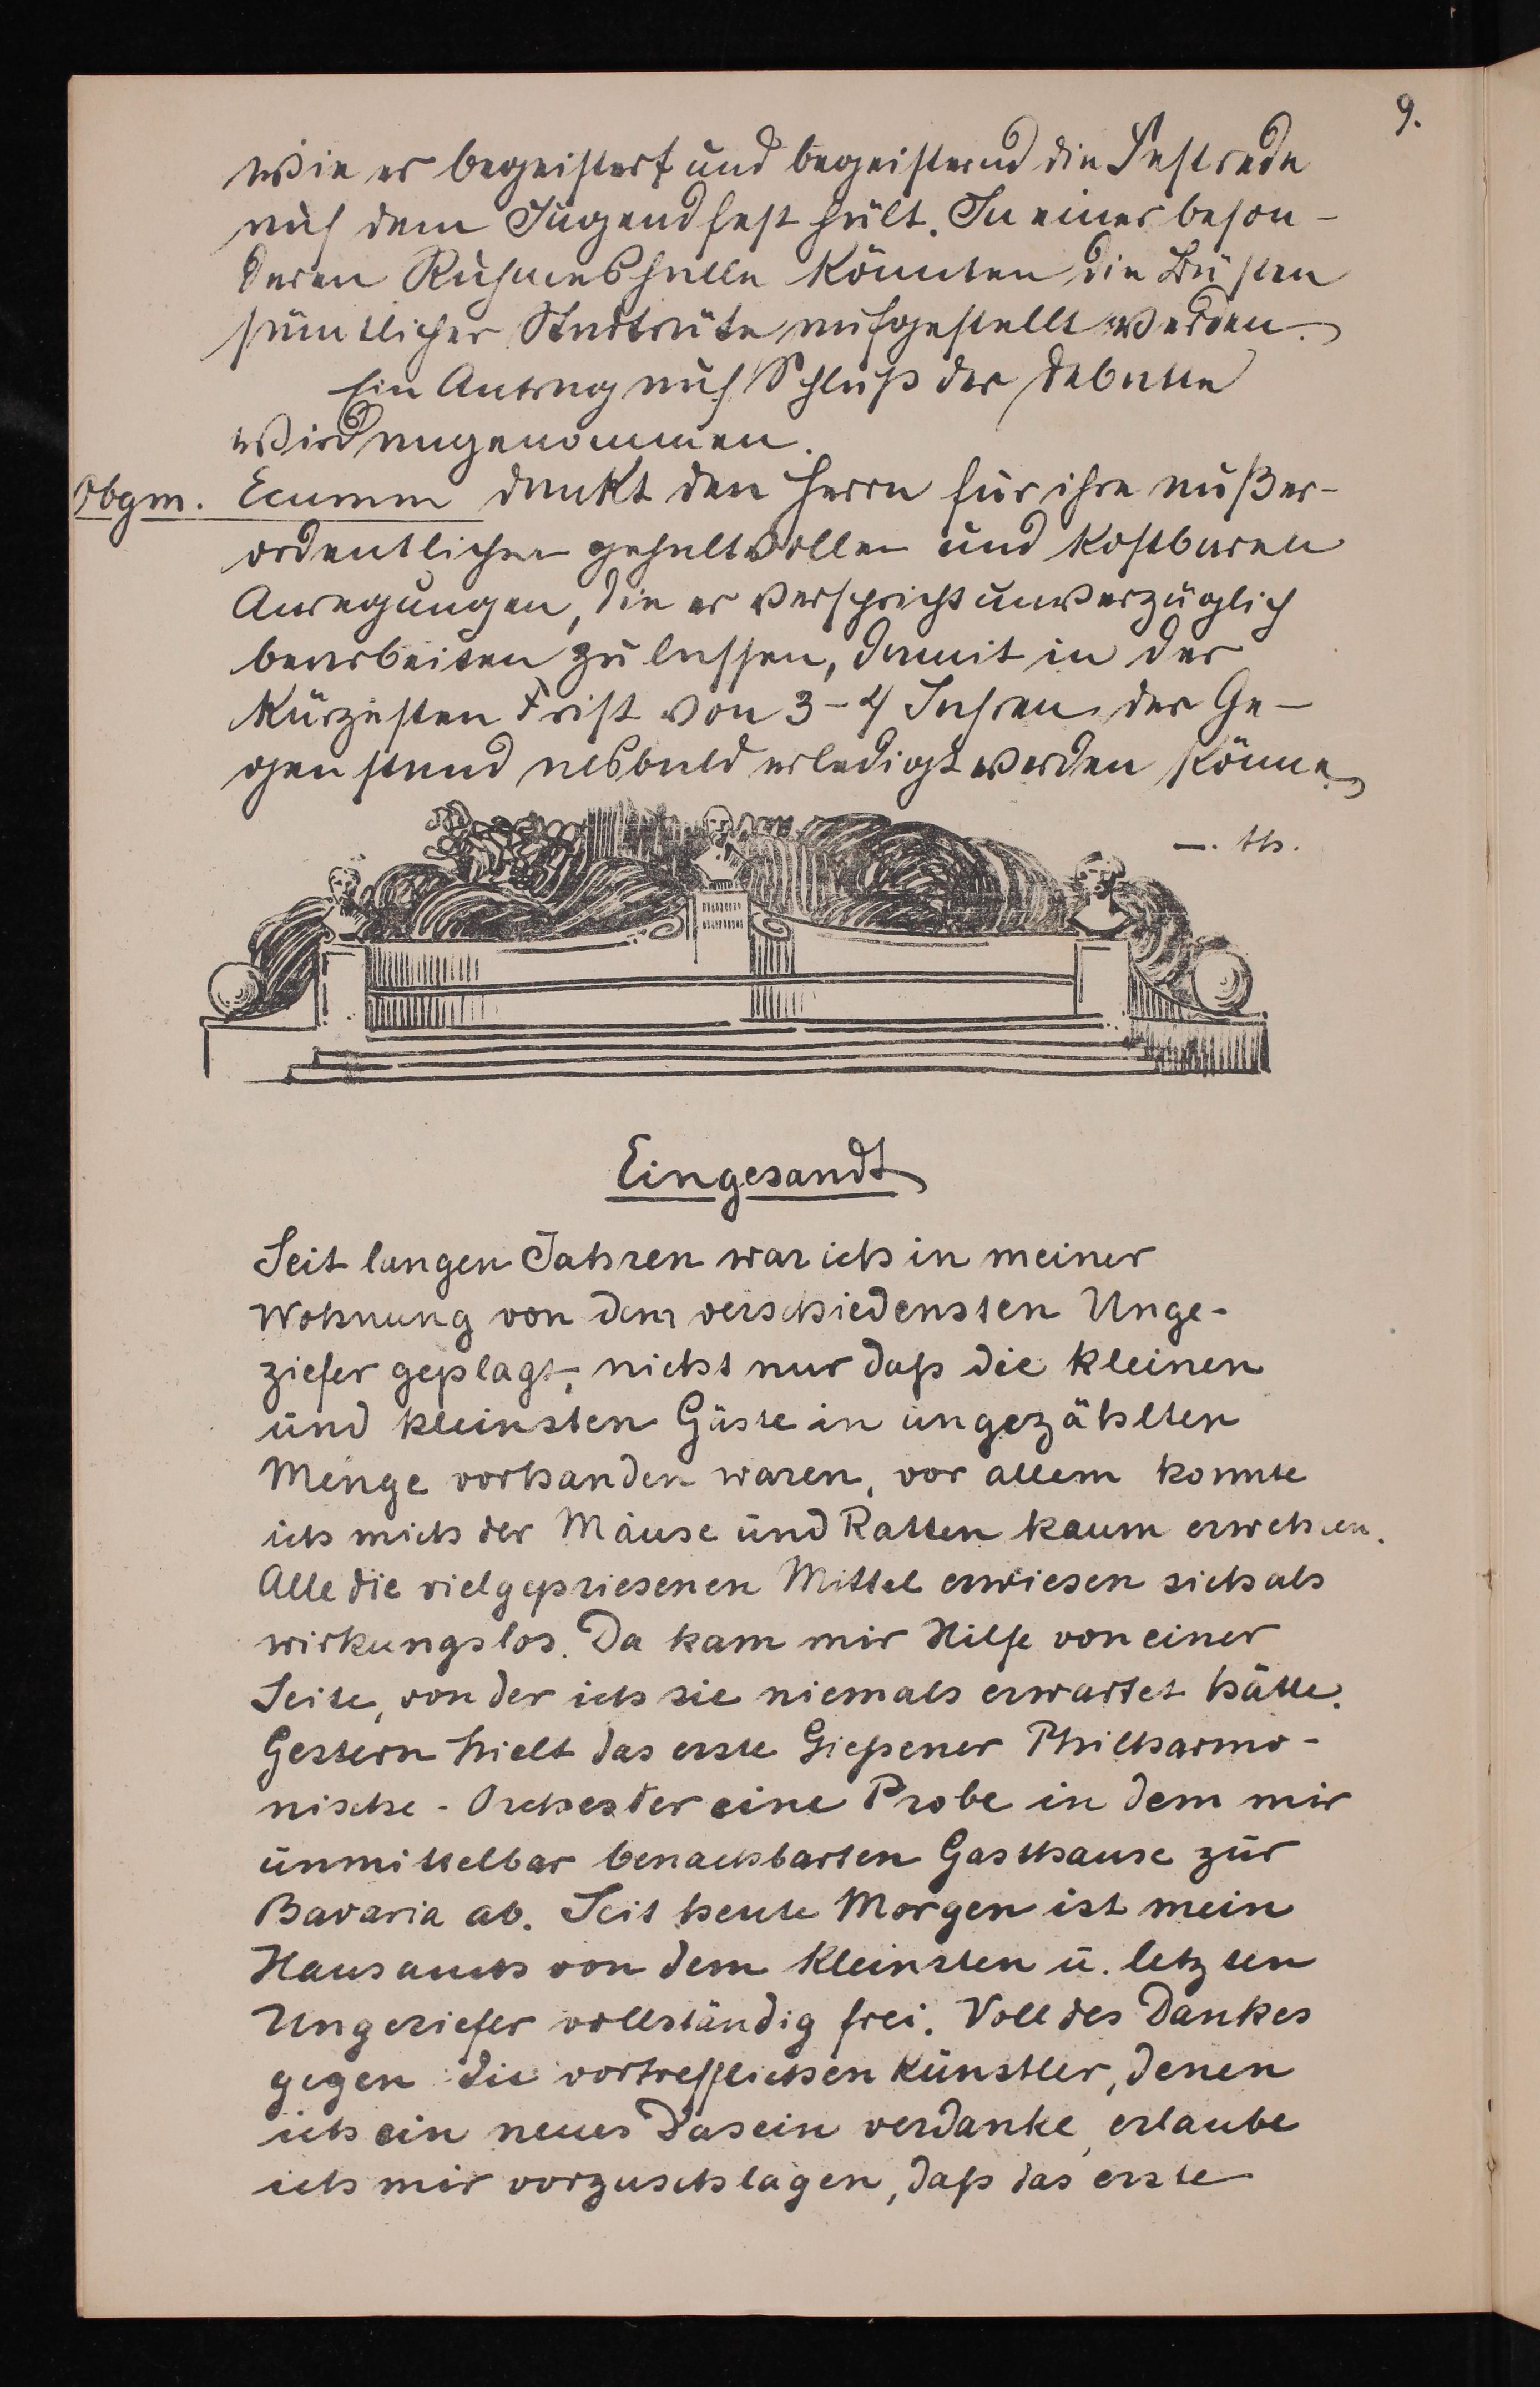 9.
wie er begeistert und begeisternd die Festrede
auf dem Jugendfest hält. In einer beson-
deren Ruhmeshalle könnten die Büsten
sämtlicher Stadträte aufgestellt werden.
Ein Antrag auf Schluß der Debatte
wird angenommen.
Obgm. Ecumm dankt den Herrn für ihre außer-
ordentlichen gehaltvollen und kostbaren
Anregungen, die er verspricht unverzüglich
bearbeiten zu lassen, damit in der
kürzesten Frist von 3-4 Jahren der Ge-
genstand alsbald erledigt werden könne.
—. th.
Eingesandt
Seit langen Jahren war ich in meiner
Wohnung von dem verschiedensten Unge-
ziefer geplagt, nicht nur daß die kleinen
und kleinsten Gäste in ungezählter
Menge vorhanden waren, vor allem konnte
ich mich der Mäuse und Ratten kaum erwehren.
Alle die vielgepriesenen Mittel erwiesen sich als
wirkungslos. Da kam mir Hilfe von einer
Seite, von der ich sie niemals erwartet hätte.
Gestern hielt das erste Gießener Philharmo-
nische-Orchester eine Probe in dem mir
unmittelbar benachbarten Gasthause zur
Bavaria ab. Seit heute Morgen ist mein
Haus auch von dem kleinsten u. letzten
Ungeziefer vollständig frei. Voll des Dankes
gegen die vortrefflichen Künstler, denen
ich ein neues Dasein verdanke, erlaube
ich mir vorzuschlagen, daß das erste